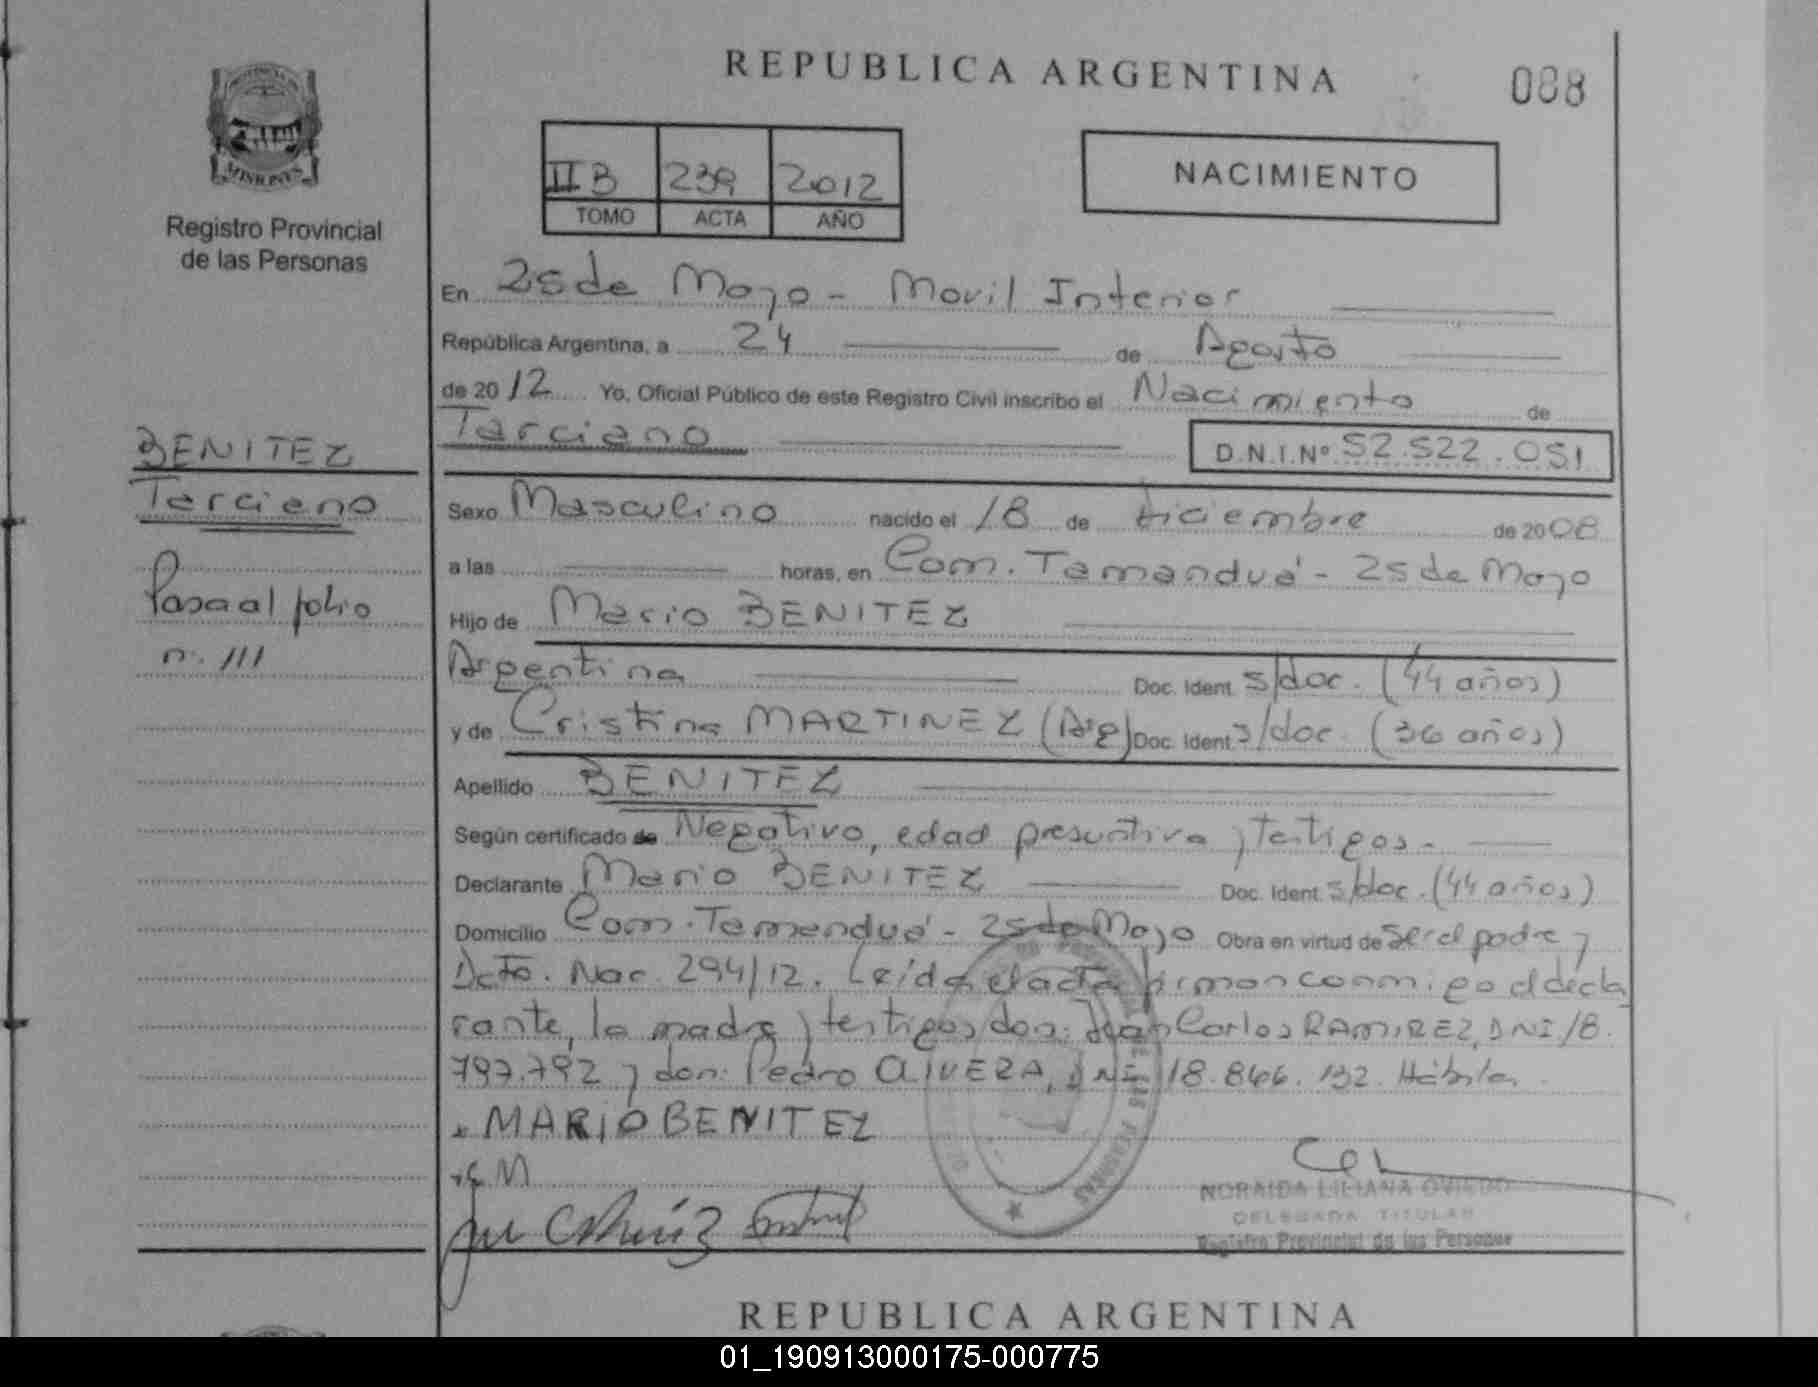 REPUBLICA ARGENTINA
088
MISIONES
Registro Provincial
de las Personas
IIB 239 2012
TOMO ACTA AÑO
NACIMIENTO
En 25 de Mayo - Movil Interior
República Argentina, a 24 de Agosto
de 2012 Yo, Oficial Público de este Registro Civil inscribo el Nacimiento de
Tarciano D.N.I.Nº 52.522.051
BENITEZ
Tarciano
Pasa al folio
n. 111
Sexo Masculino nacido el 18 de diciembre de 2008
a las horas, en Com. Tamanduá - 25 de Mayo
Hijo de Mario BENITEZ
Argentina Doc. Ident. s/doc. (44 años)
y de Cristina MARTINEZ (Arg) Doc. Ident. s/doc. (36 años)
Apellido BENITEZ
Según certificado de Negativo, edad presuntiva y testigos.-
Declarante Mario BENITEZ Doc. Ident. s/doc. (44 años)
Domicilio Com. Tamanduá - 25 de Mayo Obra en virtud de Ser el padre y
Dcto. Nac. 294/12. Leída el acta firman conmigo el decla
rante, la madre y testigos don: Juan Carlos RAMIREZ, DNI 18.
797.792 y don: Pedro OLIVERA, DNI 18.866.132. Hábiles.
MARIO BENITEZ
C M
NORAIDA LILIANA OVIEDO
DELEGADA TITULAR
Registro Provincial de las Personas
REPUBLICA ARGENTINA
01_190913000175-000775